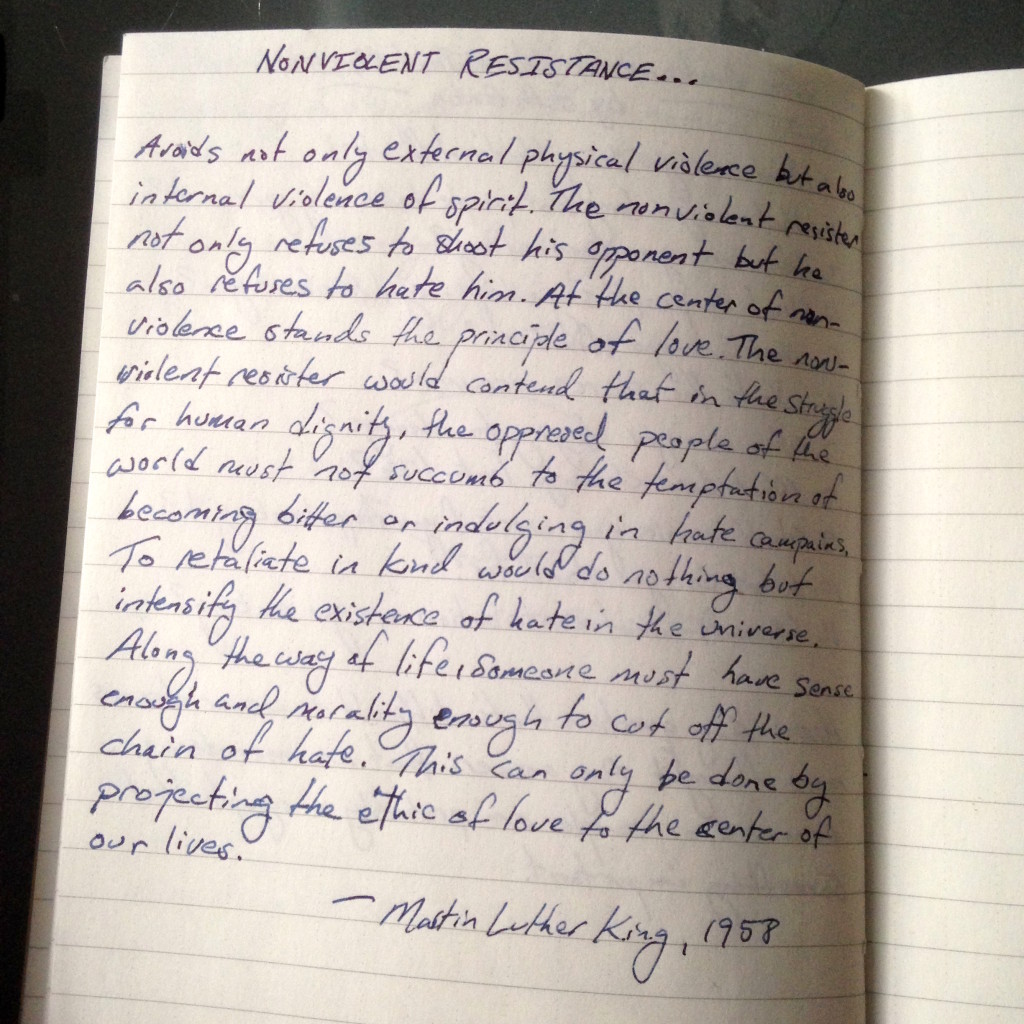 NONVIOLENT RESISTANCE...
Avoids not only external physical violence but also
internal violence of spirit. The nonviolent resister
not only refuses to shoot his opponent but he
also refuses to hate him. At the center of non-
violence stands the principle of love. The non-
violent resister would contend that in the struggle
for human dignity, the oppresed people of the
world must not succumb to the temptation of
becoming bitter or indulging in hate campains.
To retaliate in kind would do nothing but
intensify the existence of hate in the universe.
Along the way of life, someone must have sense
enough and morality enough to cut off the
chain of hate. This can only be done by
projecting the ethic of love to the center of
our lives.
— Martin Luther King, 1958